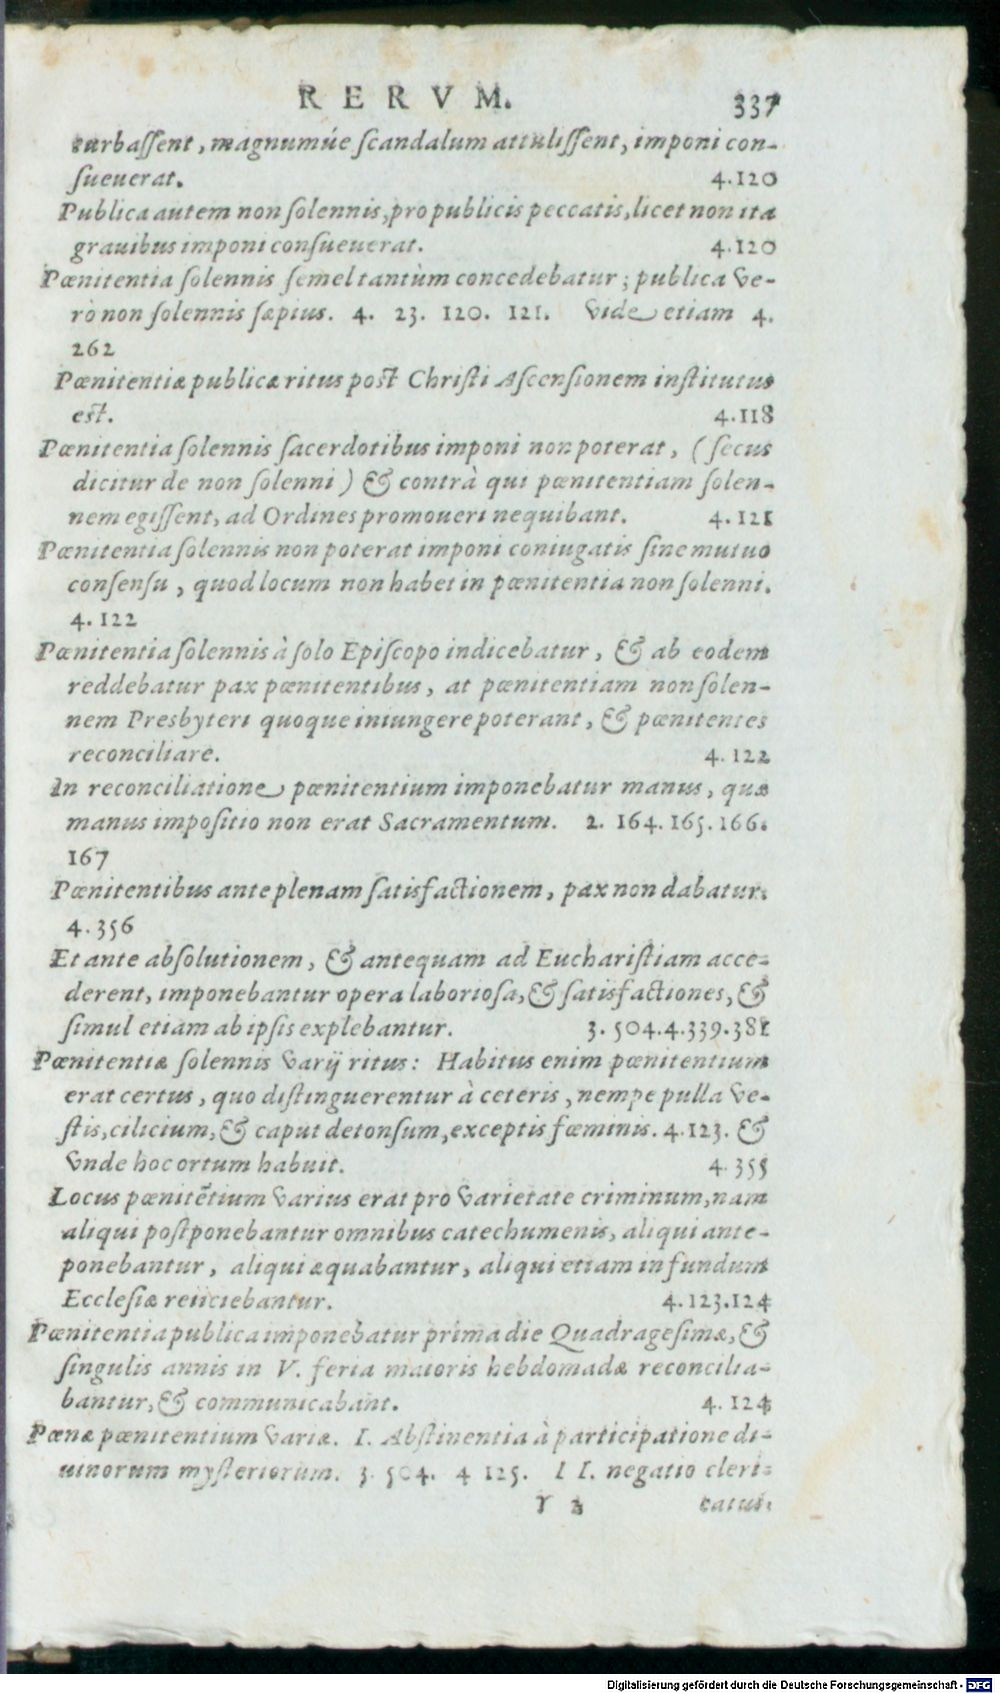 RERVM. 337
turbassent, magnumúe scandalum attulissent, imponi con-
sueuerat. 4.120
Publica autem non solennis, pro publicis peccatis, licet non ita
grauibus imponi consueuerat. 4.120
Pœnitentia solennis semel tantùm concedebatur; publica ve-
rò non solennis sæpius. 4. 23. 120. 121. Vide etiam 4.
262
Pœnitentiæ publicæ ritus post Christi Ascensionem institutus
est. 4.118
Pœnitentia solennis sacerdotibus imponi non poterat, (secus
dicitur de non solenni) & contrà qui pœnitentiam solen-
nem egissent, ad Ordines promoueri nequibant. 4.121
Pœnitentia solennis non poterat imponi coniugatis sine mutuo
consensu, quod locum non habet in pœnitentia non solenni.
4.122
Pœnitentia solennis à solo Episcopo indicebatur, & ab eodem
reddebatur pax pœnitentibus, at pœnitentiam non solen-
nem Presbyteri quoque iniungere poterant, & pœnitentes
reconciliare. 4.122
In reconciliatione pœnitentium imponebatur manus, quæ
manus impositio non erat Sacramentum. 2. 164. 165. 166.
167
Pœnitentibus ante plenam satisfactionem, pax non dabatur.
4.356
Et ante absolutionem, & antequam ad Eucharistiam acce-
derent, imponebantur opera laboriosa, & satisfactiones, &
simul etiam ab ipsis explebantur. 3. 504.4.339.381
Pœnitentiæ solennis varij ritus: Habitus enim pœnitentium
erat certus, quo distinguerentur à ceteris, nempe pulla ve-
stis, cilicium, & caput detonsum, exceptis fœminis. 4.123. &
vnde hoc ortum habuit. 4.355
Locus pœnitẽtium varius erat pro varietate criminum, nam
aliqui postponebantur omnibus catechumenis, aliqui ante-
ponebantur, aliqui æquabantur, aliqui etiam in fundum
Ecclesiæ reiiciebantur. 4.123.124
Pœnitentia publica imponebatur prima die Quadragesimæ, &
singulis annis in V. feria maioris hebdomadæ reconcilia-
bantur, & communicabant. 4.124
Pœnæ pœnitentium variæ. I. Abstinentia à participatione di-
uinorum mysteriorum. 3. 504. 4 125. II. negatio cleri-
Y 2 catus.
Digitalisierung gefördert durch die Deutsche Forschungsgemeinschaft - DFG